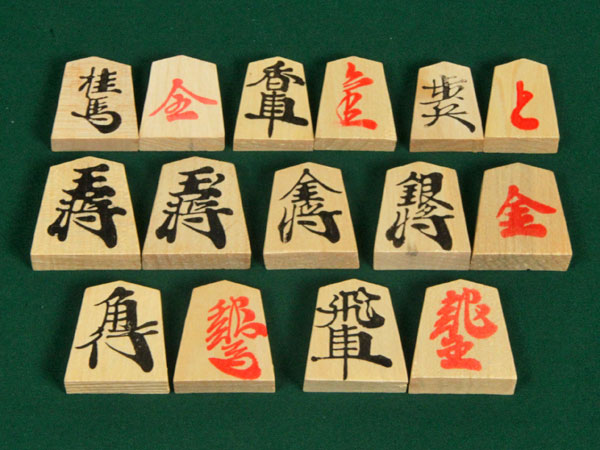 桂馬 全 香車 歩兵 と
王将 玉将 金将 銀将 金
角行 龍馬 飛車 龍王